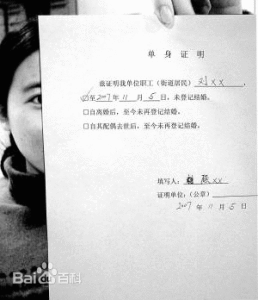 单身证明
兹证明我单位职工（街道居民）刘XX，
☑至2007年11月5日，未登记结婚。
□自离婚后，至今未再登记结婚。
□自其配偶去世后，至今未再登记结婚。
填写人：XX
证明单位：（公章）
2007年11月5日
Baidu百科